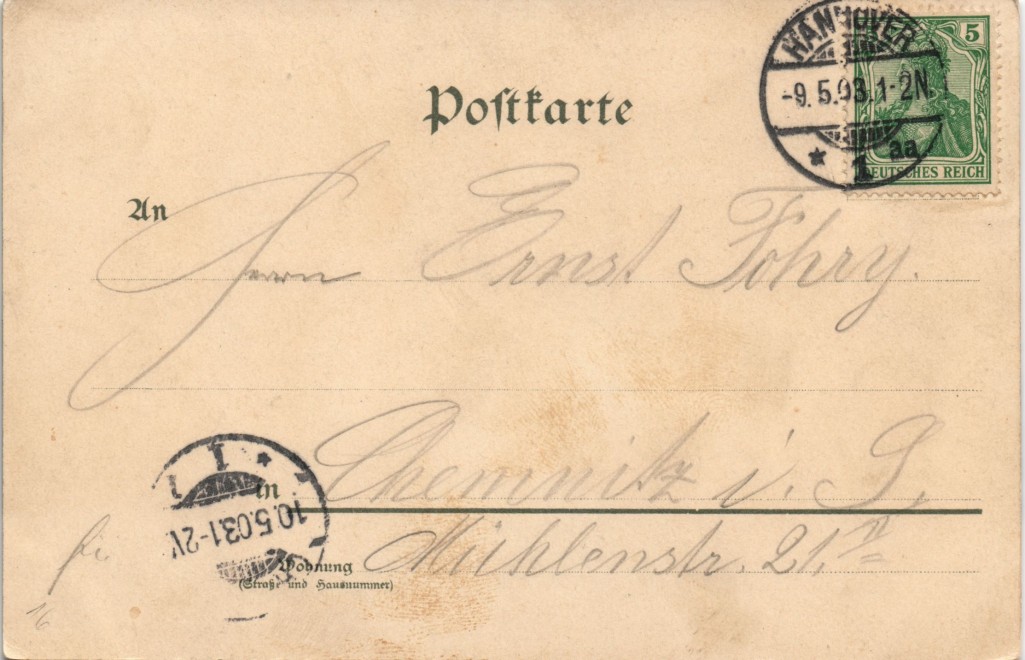 HANNOVER
-9.5.03.1-2N.
* 1 aa
5
DEUTSCHES REICH
Postkarte
An
Herrn Ernst Fohry.
Chemnitz i. S.
in
Mühlenstr. 21.
Wohnung
(Straße und Hausnummer)
10.5.03.1-2
1
16